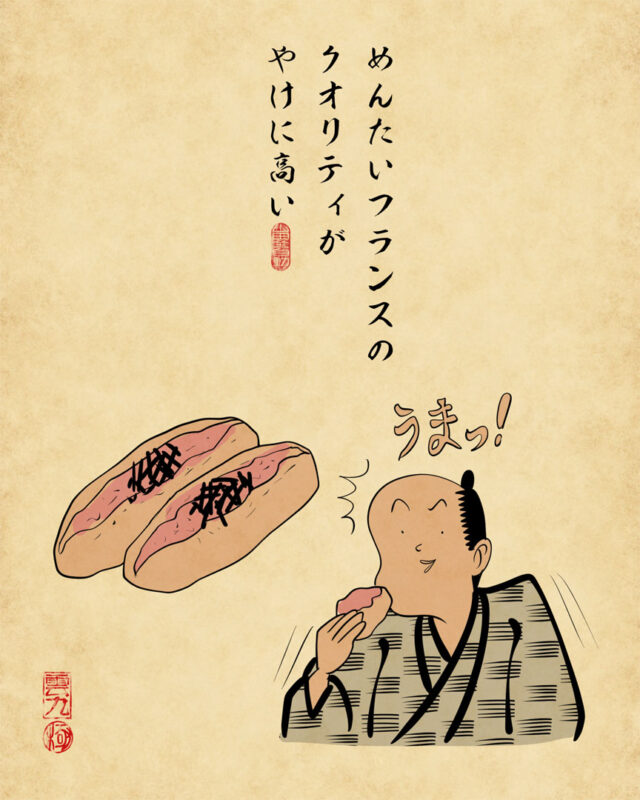 めんたいフランスの
クオリティが
やけに高い
うまっ!